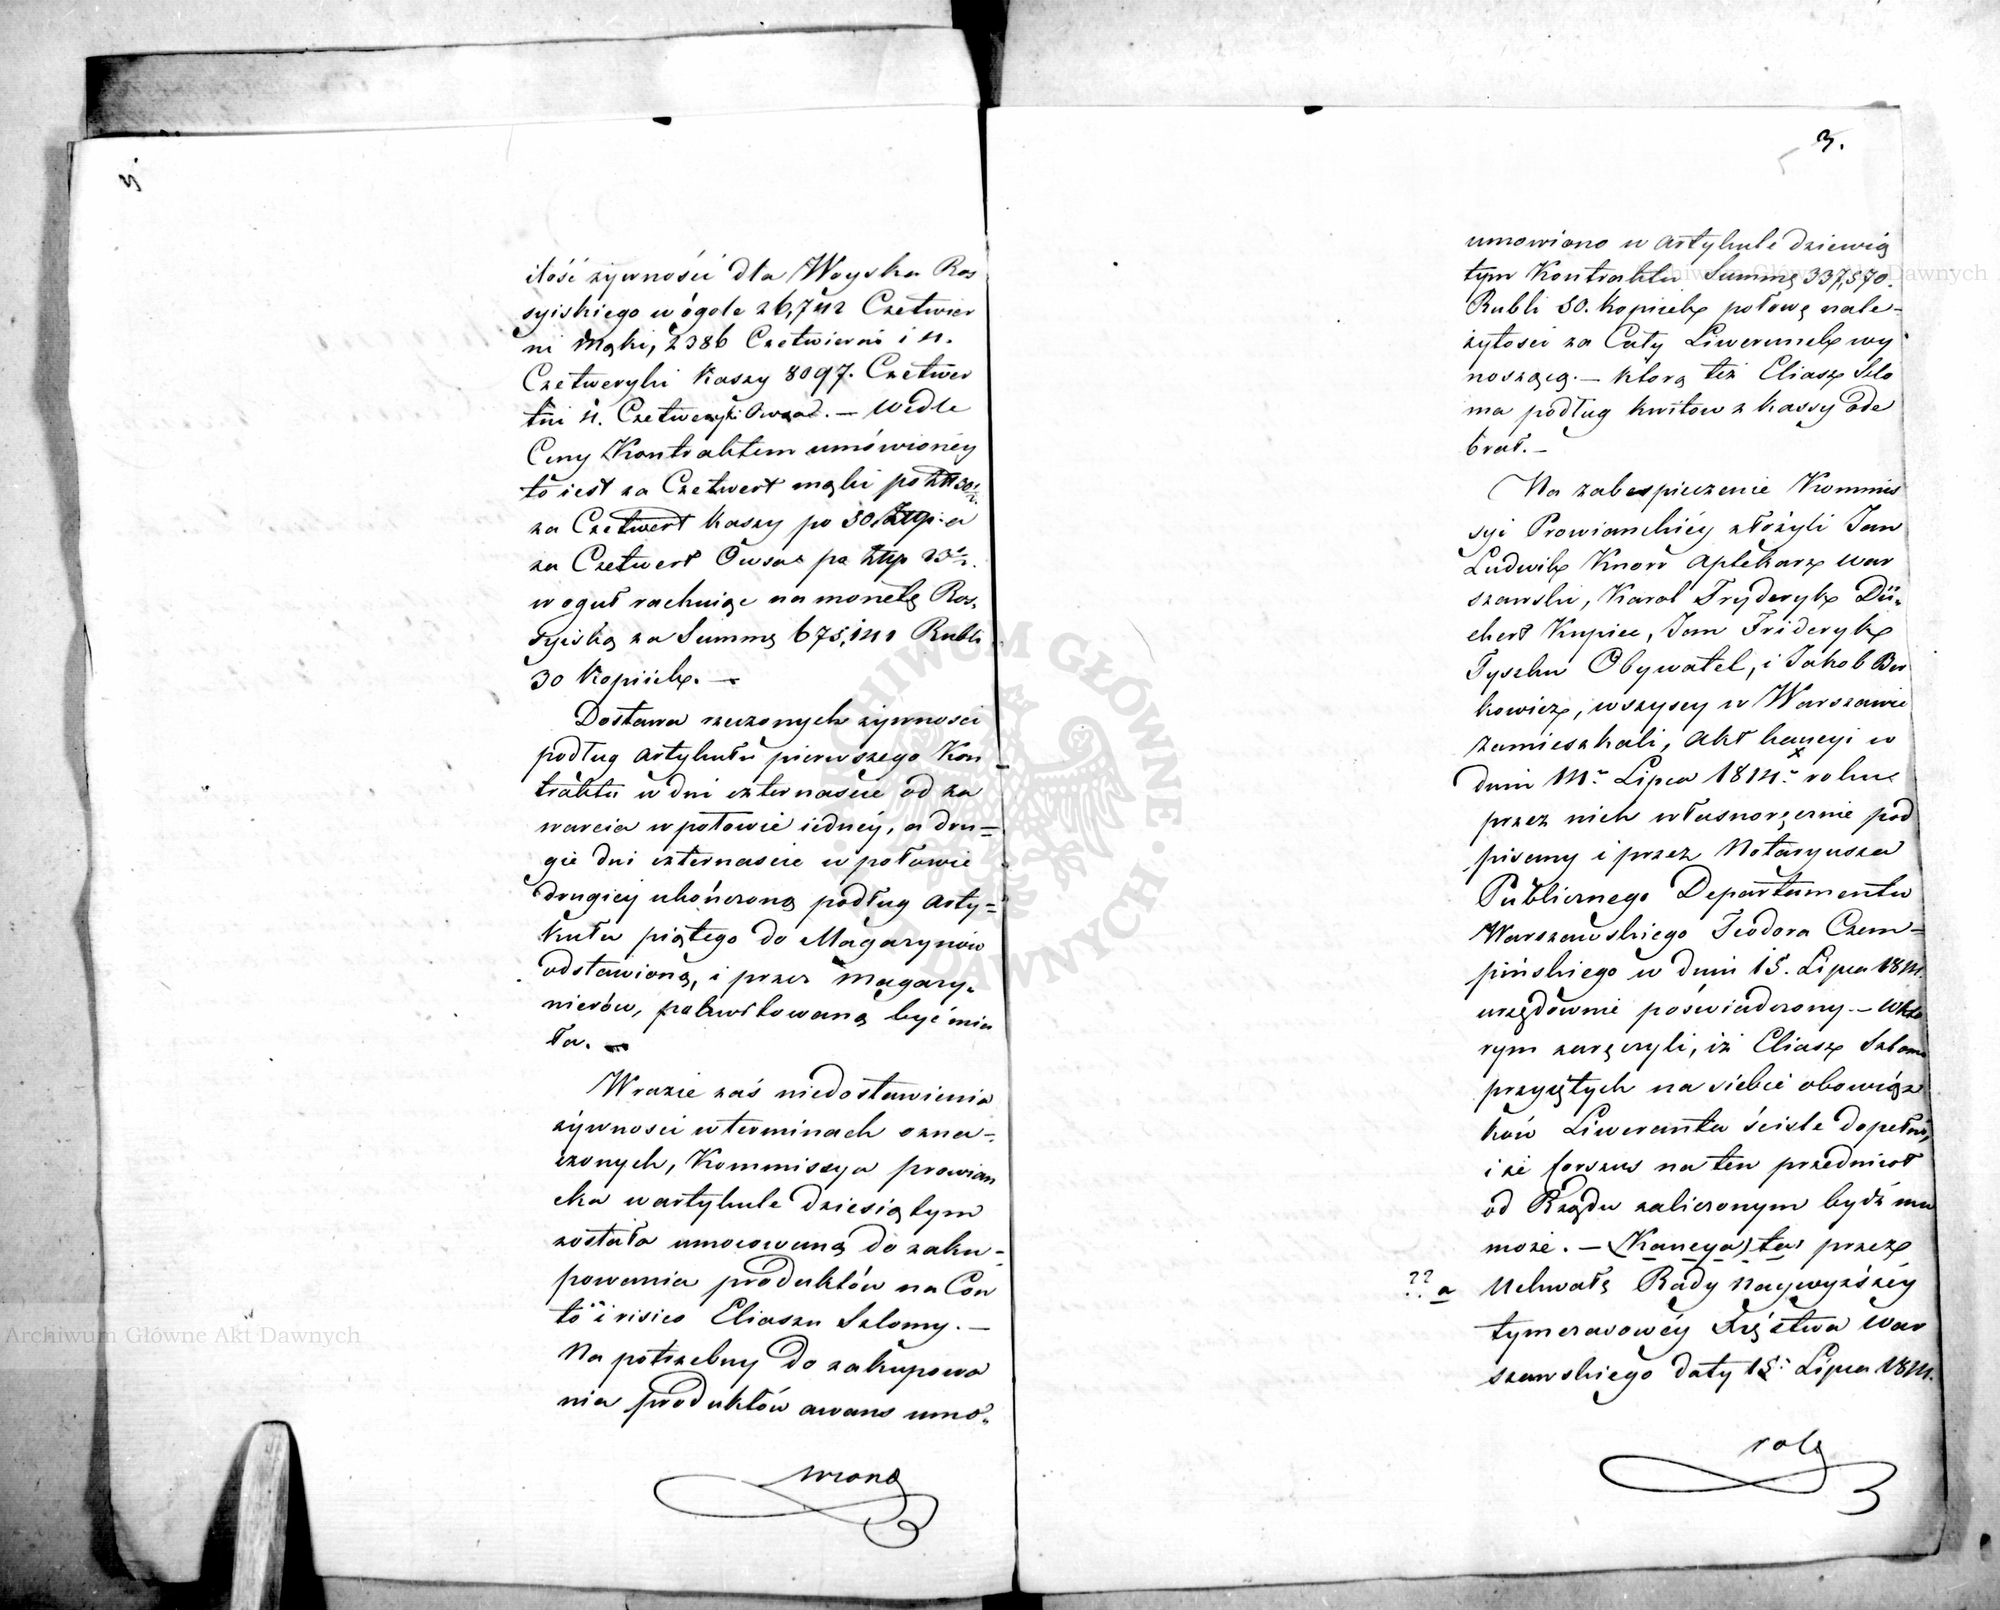 ilość żywności dla Woyska Ros
syiskiego w ogóle 26,742 Czetwier
ni Mąki, 2386 Czetwierni i 4.
Czetweryki Kaszy 8097. Czetwer
tni 4. Czetweryki Owsa. — Wedle
Ceny Kontraktem umówioney
to iest za Czetwert mąki po
za Czetwert Kaszy po 30 Złłp. a
za Czetwert Owsa po Złłp 23½.
w oguł rachuiąc na monetę Ros-
syiską za Summę 675,141 Rubli
30 Kopiiek. —
Dostawa rzeczonych żywności
podług artykułu pierwszego Kon
traktu w dni czternaście od za
warcia w połowie iedney, a dru=
gie dni czternaście w połowie
drugiey ukończoną podług arty=
kułu piątego do Magazynów
odstawioną, i przez Magazy-
nierów, pokwitowaną być mia
ła. —
W razie zaś niedostawienia
żywności w terminach ozna=
czonych, Kommissya prowian
cka w artykule dziesiątym
została umocowaną do zaku=
powania produktów na Con
to i risico Eliasza Szlomy. —
Na potrzebny do zakupowa
nia produktów awans umó-
wioną
3.
umowiono w artykule dziewią
tym Kontraktu Summę 337,570.
Rubli 50. Kopiiek połowę nale=
żytości za Cały Liwerunek wy
noszącą. — którą też Eliasz Szlo
ma podług kwitow z kassy ode
brał. —
Na zabespieczenie Kommis
syi Prowianckiéy złożyli Jan
Ludwik Knorr Aptekarz War
szawski, Karol Fryderyk Dü-
chert Kupiec, Jan Frideryk
Tyschu Obywatel, i Jakob Ber
kowicz, wszyscy w Warszawie
zamieszkali, Akt kaucyi w
dniu 14. Lipca 1814. roku
przez nich własnoręcznie pod
pisany i przez Notaryusza
Publicznego Departamentu
Warszawskiego Teodora Czem=
pińskiego w dniu 15. Lipca 1814.
urzędownie poświadczony. — w któ
rym zaręczyli, iż Eliasz Szloma
przyiętych na siebie obowiąz
ków Liweranta ściśle dopełni,
i że forszus na ten przedmiot
od Rządu zaliczonym bydź mu
może. — (Kaucya) ta przez
?? a Uchwałę Rady Naywyższéy
tymczasowéy Xięstwa War
szawskiego daty 15. Lipca 1814.
rołę
Archiwum Główne Akt Dawnych
Archiwum Główne Akt Dawnych
ARCHIWUM GŁÓWNE · AKT DAWNYCH ·